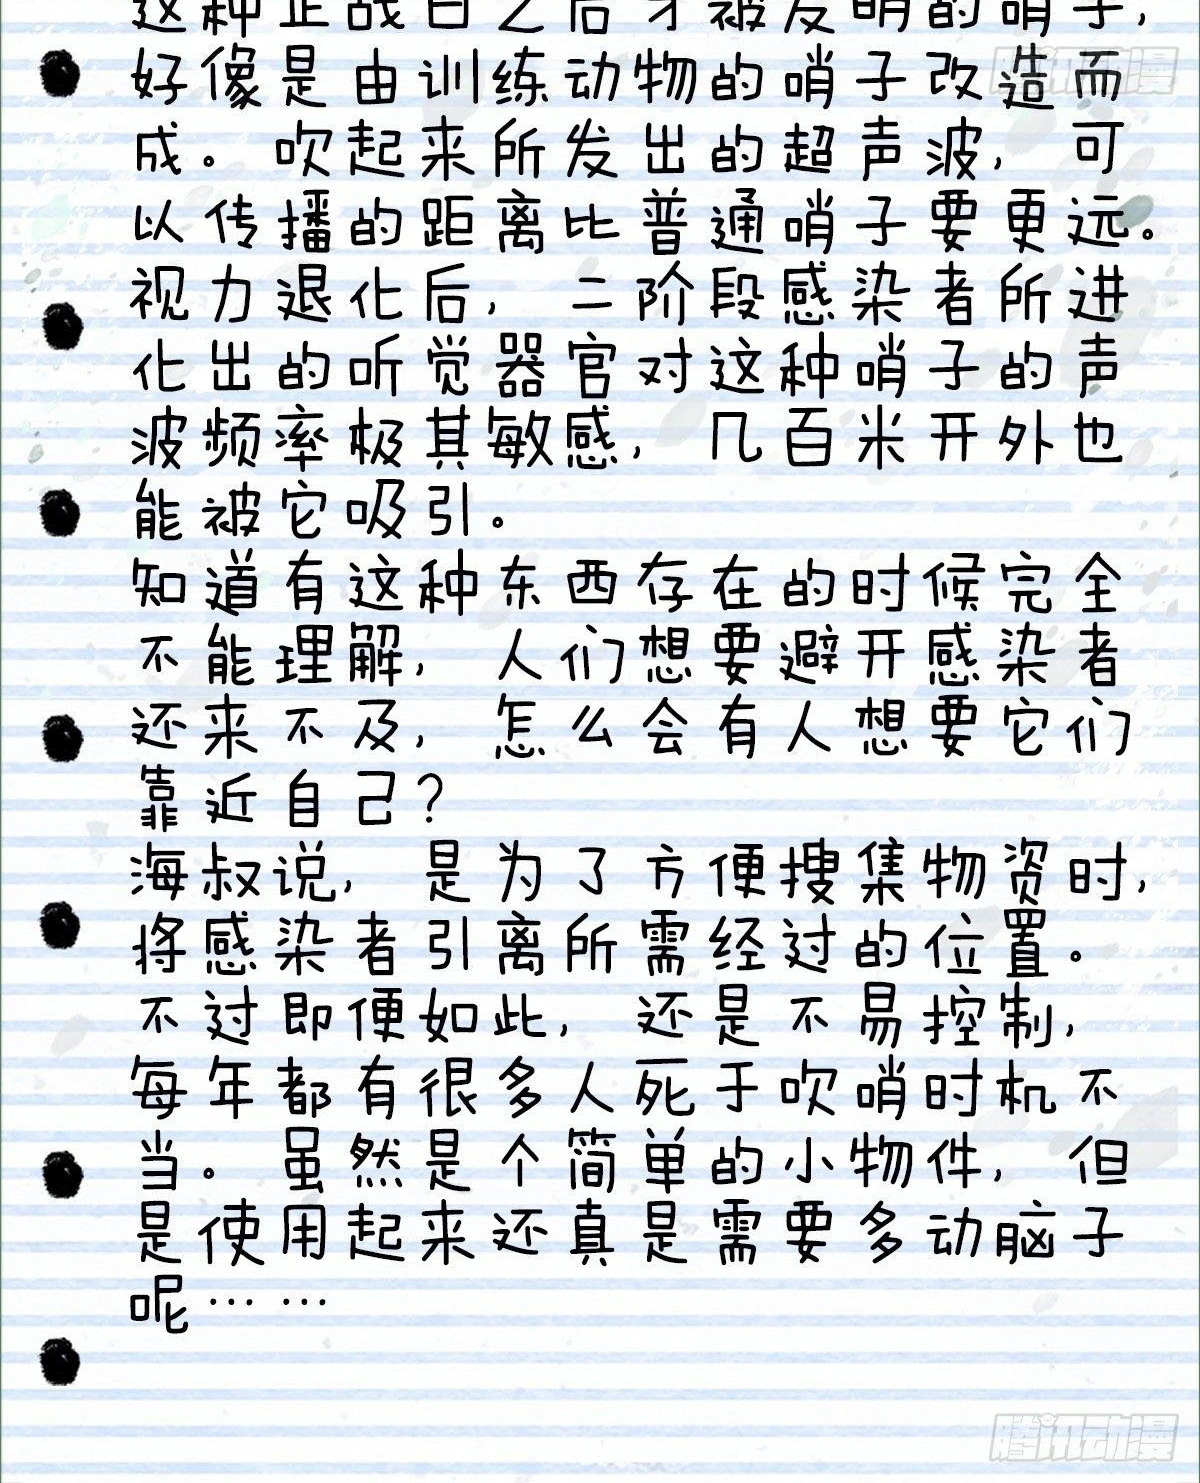 这种止战日之后才被发明的哨子，
好像是由训练动物的哨子改造而
成。吹起来所发出的超声波，可
以传播的距离比普通哨子要更远。
视力退化后，二阶段感染者所进
化出的听觉器官对这种哨子的声
波频率极其敏感，几百米开外也
能被它吸引。
知道有这种东西存在的时候完全
不能理解，人们想要避开感染者
还来不及，怎么会有人想要它们
靠近自己？
海叔说，是为了方便搜集物资时，
将感染者引离所需经过的位置。
不过即便如此，还是不易控制，
每年都有很多人死于吹哨时机不
当。虽然是个简单的小物件，但
是使用起来还真是需要多动脑子
呢……
腾讯动漫
腾讯动漫